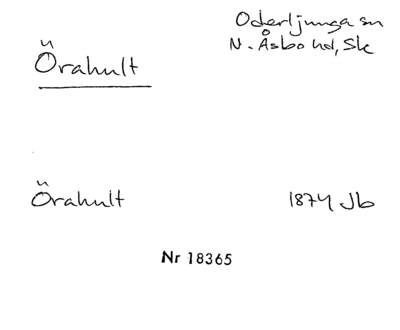 Oderljunga sn
Örahult
N. Åsbo hd, Sk
Örahult
1874 Jb
Nr 18365